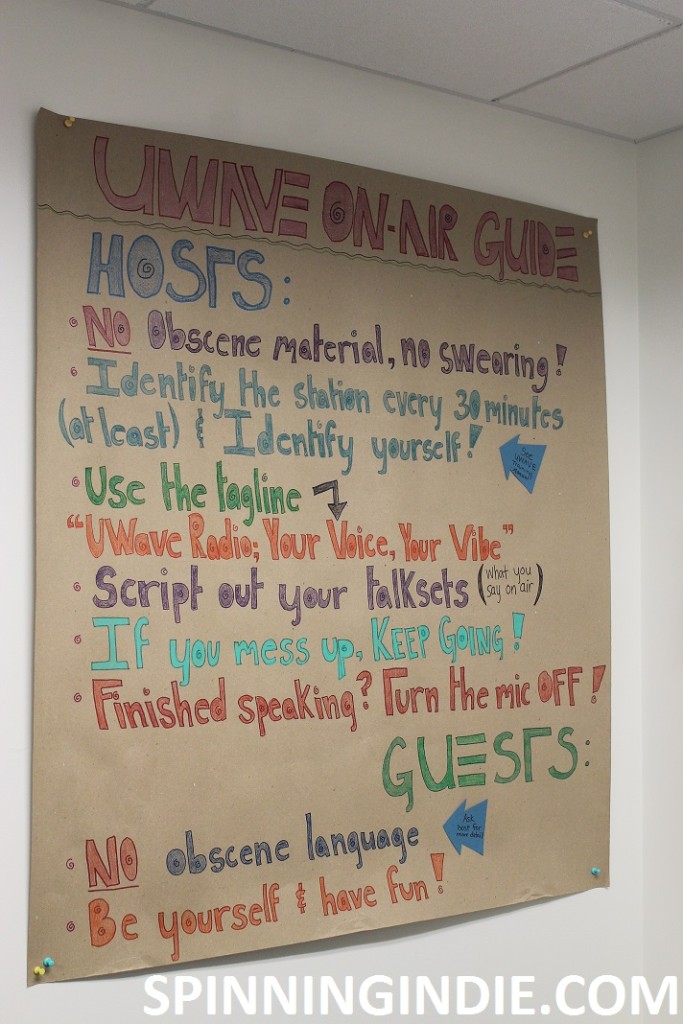 UWAVE ON-AIR GUIDE
HOSTS:
• NO Obscene material, no swearing!
• Identify the station every 30 minutes
(at least) & Identify yourself!
See
UWAVE
• Use the tagline
"UWave Radio; Your Voice, Your Vibe"
• Script out your talksets (What you
say on air)
• If you mess up, KEEP GOING!
• Finished speaking? Turn the mic OFF!
GUESTS:
Ask
host for
more detail
• NO obscene language
• Be yourself & have fun!
SPINNINGINDIE.COM